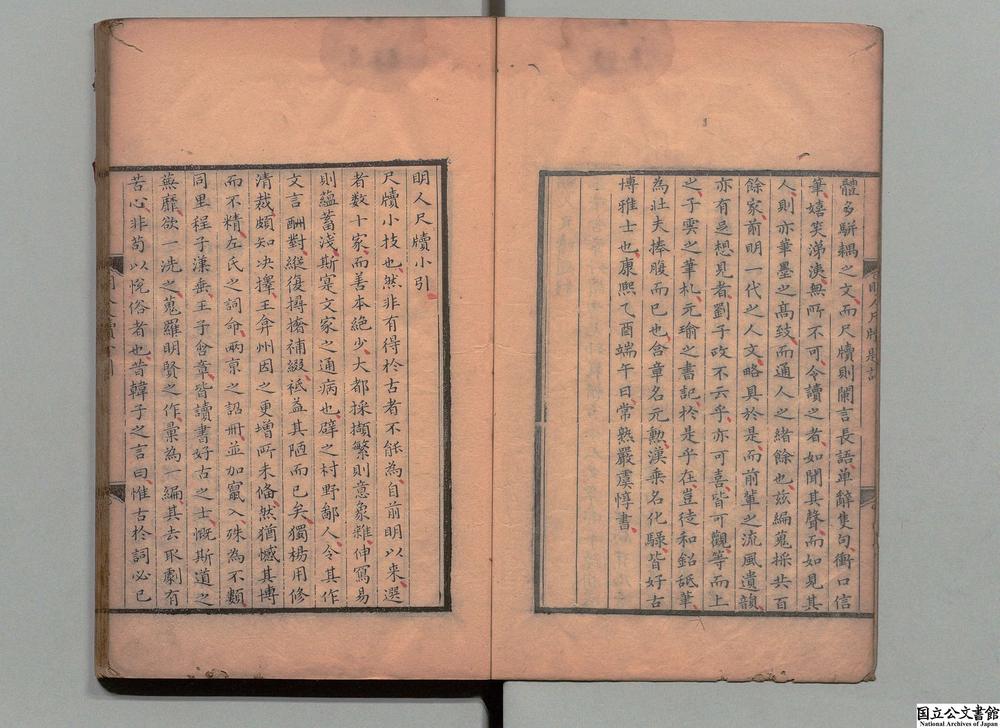 體多駢耦之文而尺牘則闌言長語單辭隻句衝口信
筆嬉笑涕洟無所不可令讀之者如聞其聲而如見其
人則亦筆墨之高致而通人之緒餘也茲編蒐採共百
餘家前明一代之人文略具於是而前輩之流風遺韻
亦有足想見者劉子政不云乎亦可喜皆可觀等而上
之子雲之筆札元瑜之書記於是乎在豈徒和鉛舐筆
為壯夫捧腹而已也含章名元勲漢乘名化騄皆好古
博雅士也康熙乙酉端午日常熟嚴虞惇書
明人尺牘小引
尺牘小技也然非有得於古者不能為自前明以來選
者數十家而善本絕少大都採擷繁則意象雜伸寫易
則蘊蓄淺斯寔文家之通病也辟之村野鄙人令其作
文言酬對縱復撏撦補綴祗益其陋而已矣獨楊用修
清裁頗知決擇王弇州因之更增所未備然猶憾其博
而不精左氏之詞命兩京之詔冊並加竄入殊為不類
同里程子漢乘王子含章皆讀書好古之士慨斯道之
蕪靡欲一洗之蒐羅明賢之作彙為一編其去取劇有
苦心非苟以悅俗者也昔韓子之言曰惟古於詞必已
国立公文書館
National Archives of Japan